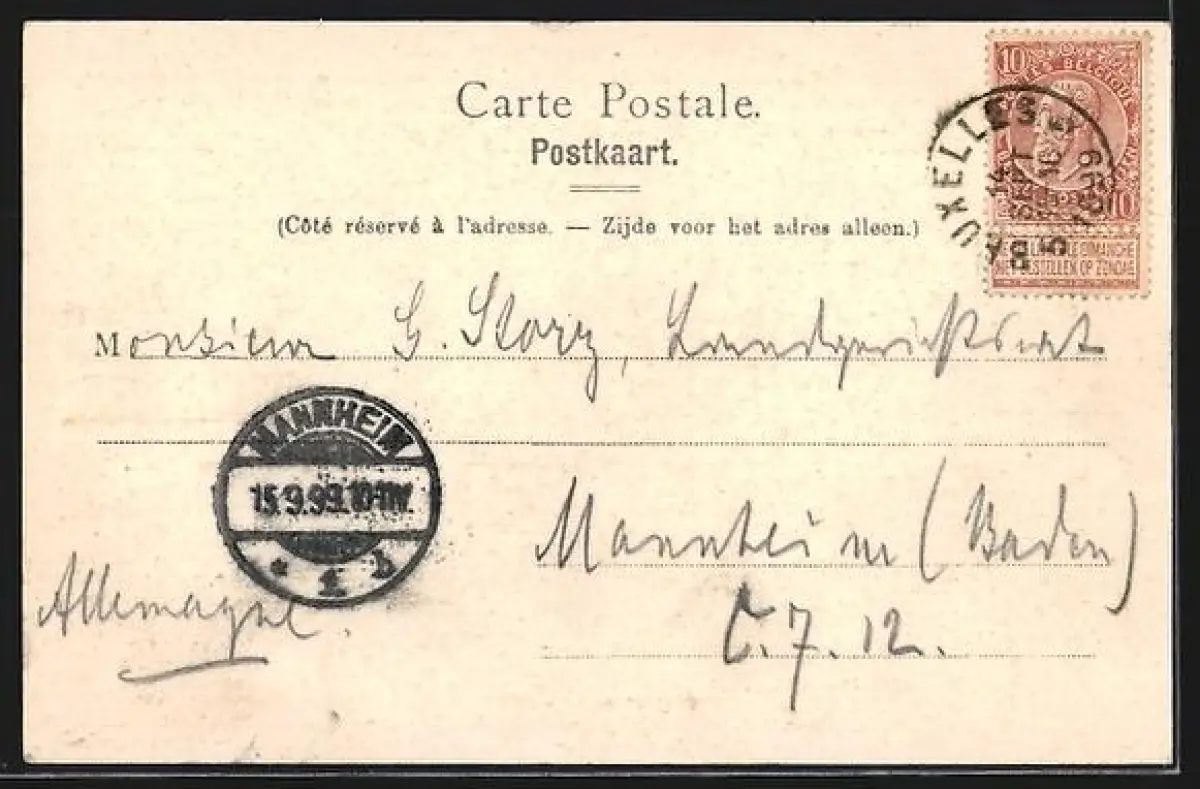 Carte Postale.
Postkaart.
(Côté réservé à l'adresse. — Zijde voor het adres alleen.)
10
10
BRUXELLES
14 SEPT
1899
NE PAS LIVRER LE DIMANCHE
NIET BESTELLEN OP ZONDAG
Monsieur G. Storz, Landgerichtsrat
MANNHEIM
15.9.99.10-11V.
* 1 b
Mannheim (Baden)
Allemagne.
C.7.12.